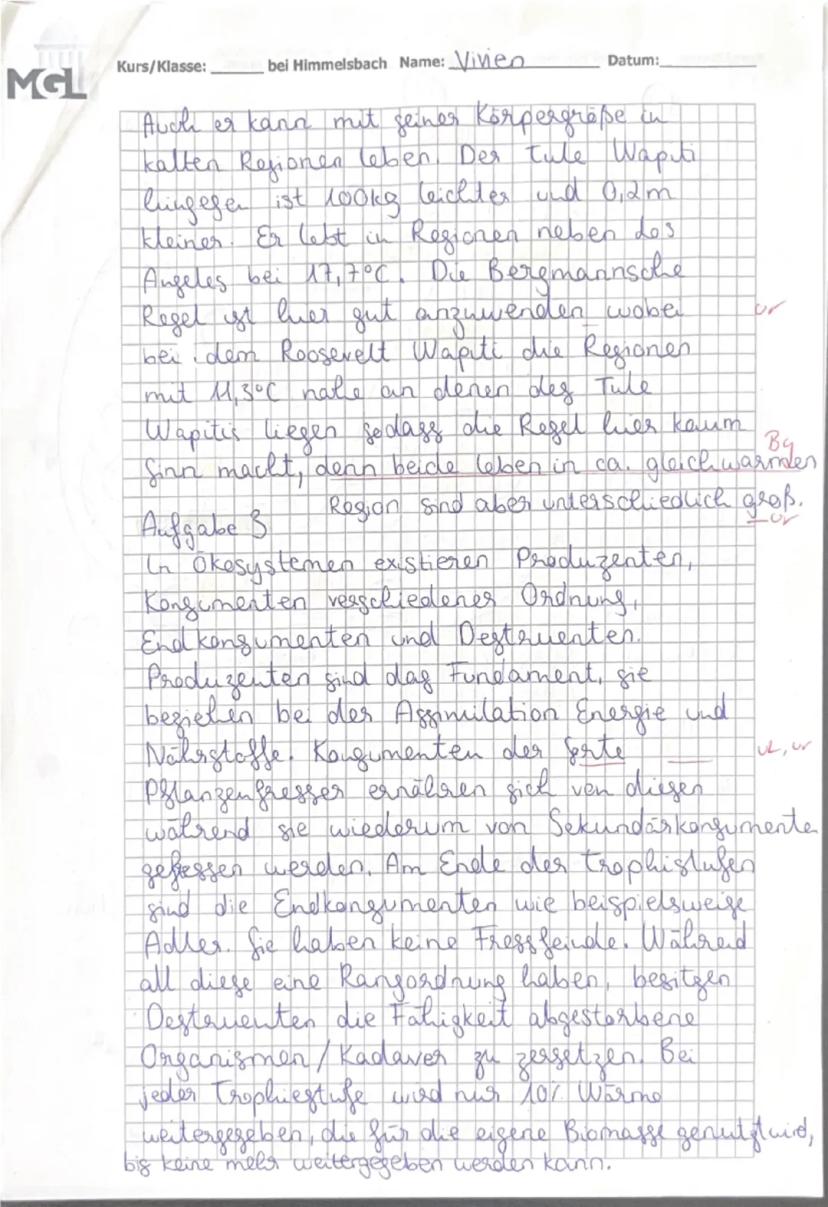 MGL Kurs/Klasse: ______ bei Himmelsbach Name: Vivien Datum:
Auch er kann mit seiner Körpergröße in
kalten Regionen leben. Der Tule Wapiti
hingegen ist 100kg leichter und 0,2m
kleiner. Er lebt in Regionen neben Los
Angeles bei 17,7°C. Die Bergmannsche
Regel ist hier gut anzuwenden wobei
bei dem Roosevelt Wapiti die Regionen
mit 11,3°C nahe an denen des Tule
Wapitis liegen sodass die Regel hier kaum
Bg
Sinn macht, denn beide leben in ca. gleich warmen
Region sind aber unterschiedlich groß.
Aufgabe 3
In Ökosystemen existieren Produzenten,
Konsumenten verschiedener Ordnung,
Endkonsumenten und Destruenten.
Produzenten sind das Fundament, sie
beziehen bei der Assimilation Energie und
Nährstoffe. Konsumenten der
Pflanzenfresser ernähren sich von diesen
während sie wiederum von Sekundärkonsumente
gefressen werden. Am Ende der Trophistufen
sind die Endkonsumenten wie beispielsweise
Adler. Sie haben keine Fressfeinde. Während
all diese eine Rangordnung haben, besitzen
Destruenten die Fähigkeit abgestorbene
Organismen/Kadaver zu zersetzen. Bei
jeder Trophiestufe wird nur 10% Wärme
weitergegeben, die für die eigene Biomasse genutzt wird,
bis keine mehr weitergegeben werden kann.